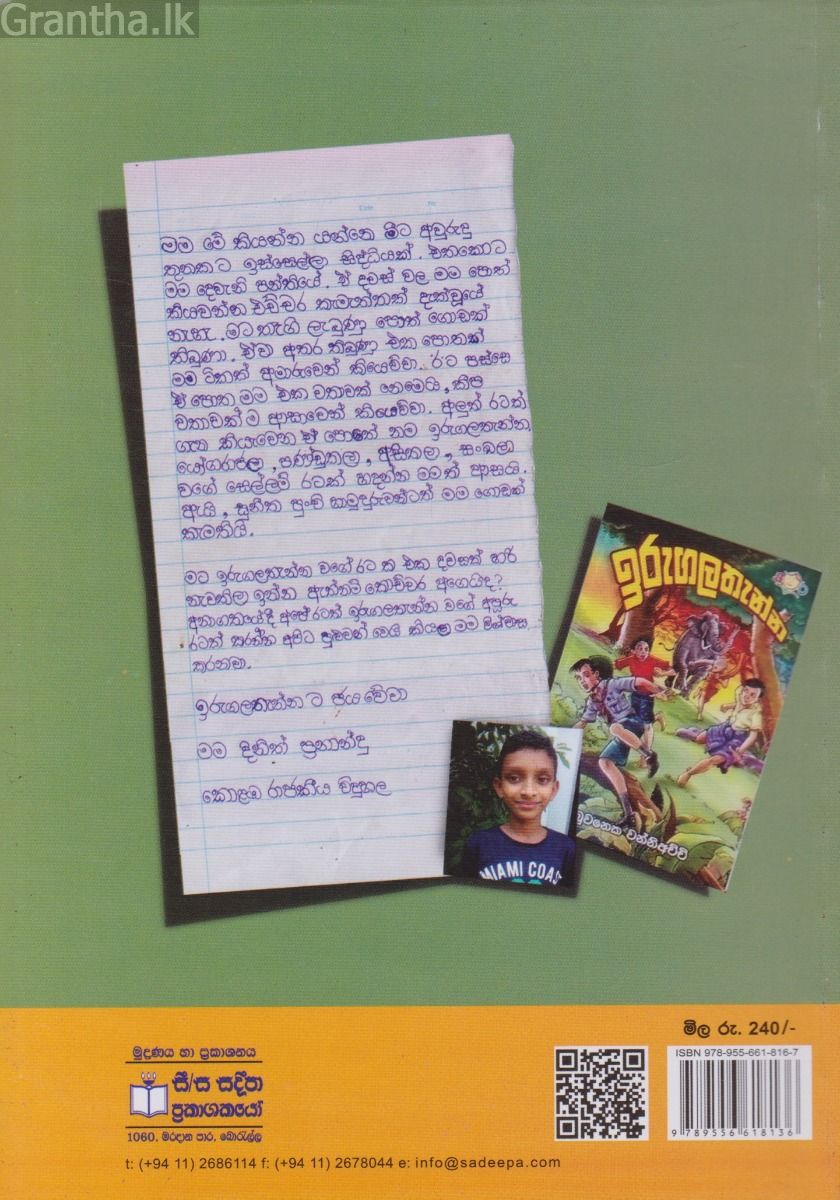 Grantha.lk
මම මේ කියන්න යන්නෙ මීට අවුරුදු
තුනකට ඉස්සෙල්ලා සිද්ධියක්. එතකොට
මම දෙවැනි පන්තියේ. ඒ දවස් වල මම පොත්
කියවන්න එච්චර කැමැත්තක් දැක්වූයේ
නැහැ. මට තෑගි ලැබුණු පොත් ගොඩක්
තිබුණා. ඒවා අතර තිබුණු එක පොතක්
මම ටිකක් අමාරුවෙන් කියෙව්වා. ඊට පස්සෙ
ඒ පොත මම එක වතාවක් නෙමෙයි, කීප
වතාවක්ම ආසාවෙන් කියෙව්වා. අලුත් රටක්
ගැන කියැවෙන ඒ පොතේ නම ඉරුගලතැන්න
යෝගරාජලා, පණ්ඩුකලා, අසිතලා, සංඛලා
වගේ සෙල්ලම් රටක් හදන්න මමත් ආසයි.
ඇයි, සුනීත පුංචි හාමුදුරුවන්ටත් මම ගොඩක්
කැමතියි.
මට ඉරුගලතැන්න වගේ රට ක එක දවසක් හරි
නැවතිලා ඉන්න ඇත්නම් කොච්චර අගෙයිද?
අනාගතයේදී අපේ රටත් ඉරුගලතැන්න වගේ අපූරු
රටක් කරන්න අපිට පුළුවන් වෙයි කියලා මම විශ්වාස
කරනවා.
ඉරුගලතැන්න ට ජය වේවා
මම දිනිත් ප්‍රනාන්දු
කොළඹ රාජකීය විදුහල
ඉරුගලතැන්න
බුවනෙක වන්නිඅච්චි
MIAMI COAST
මිල රු. 240/-
මුද්‍රණය හා ප්‍රකාශනය
සී/ස සදීප
ප්‍රකාශකයෝ
1060, මරදාන පාර, බොරැල්ල
t: (+94 11) 2686114 f: (+94 11) 2678044 e: info@sadeepa.com
ISBN 978-955-661-816-7
9 789556 618136